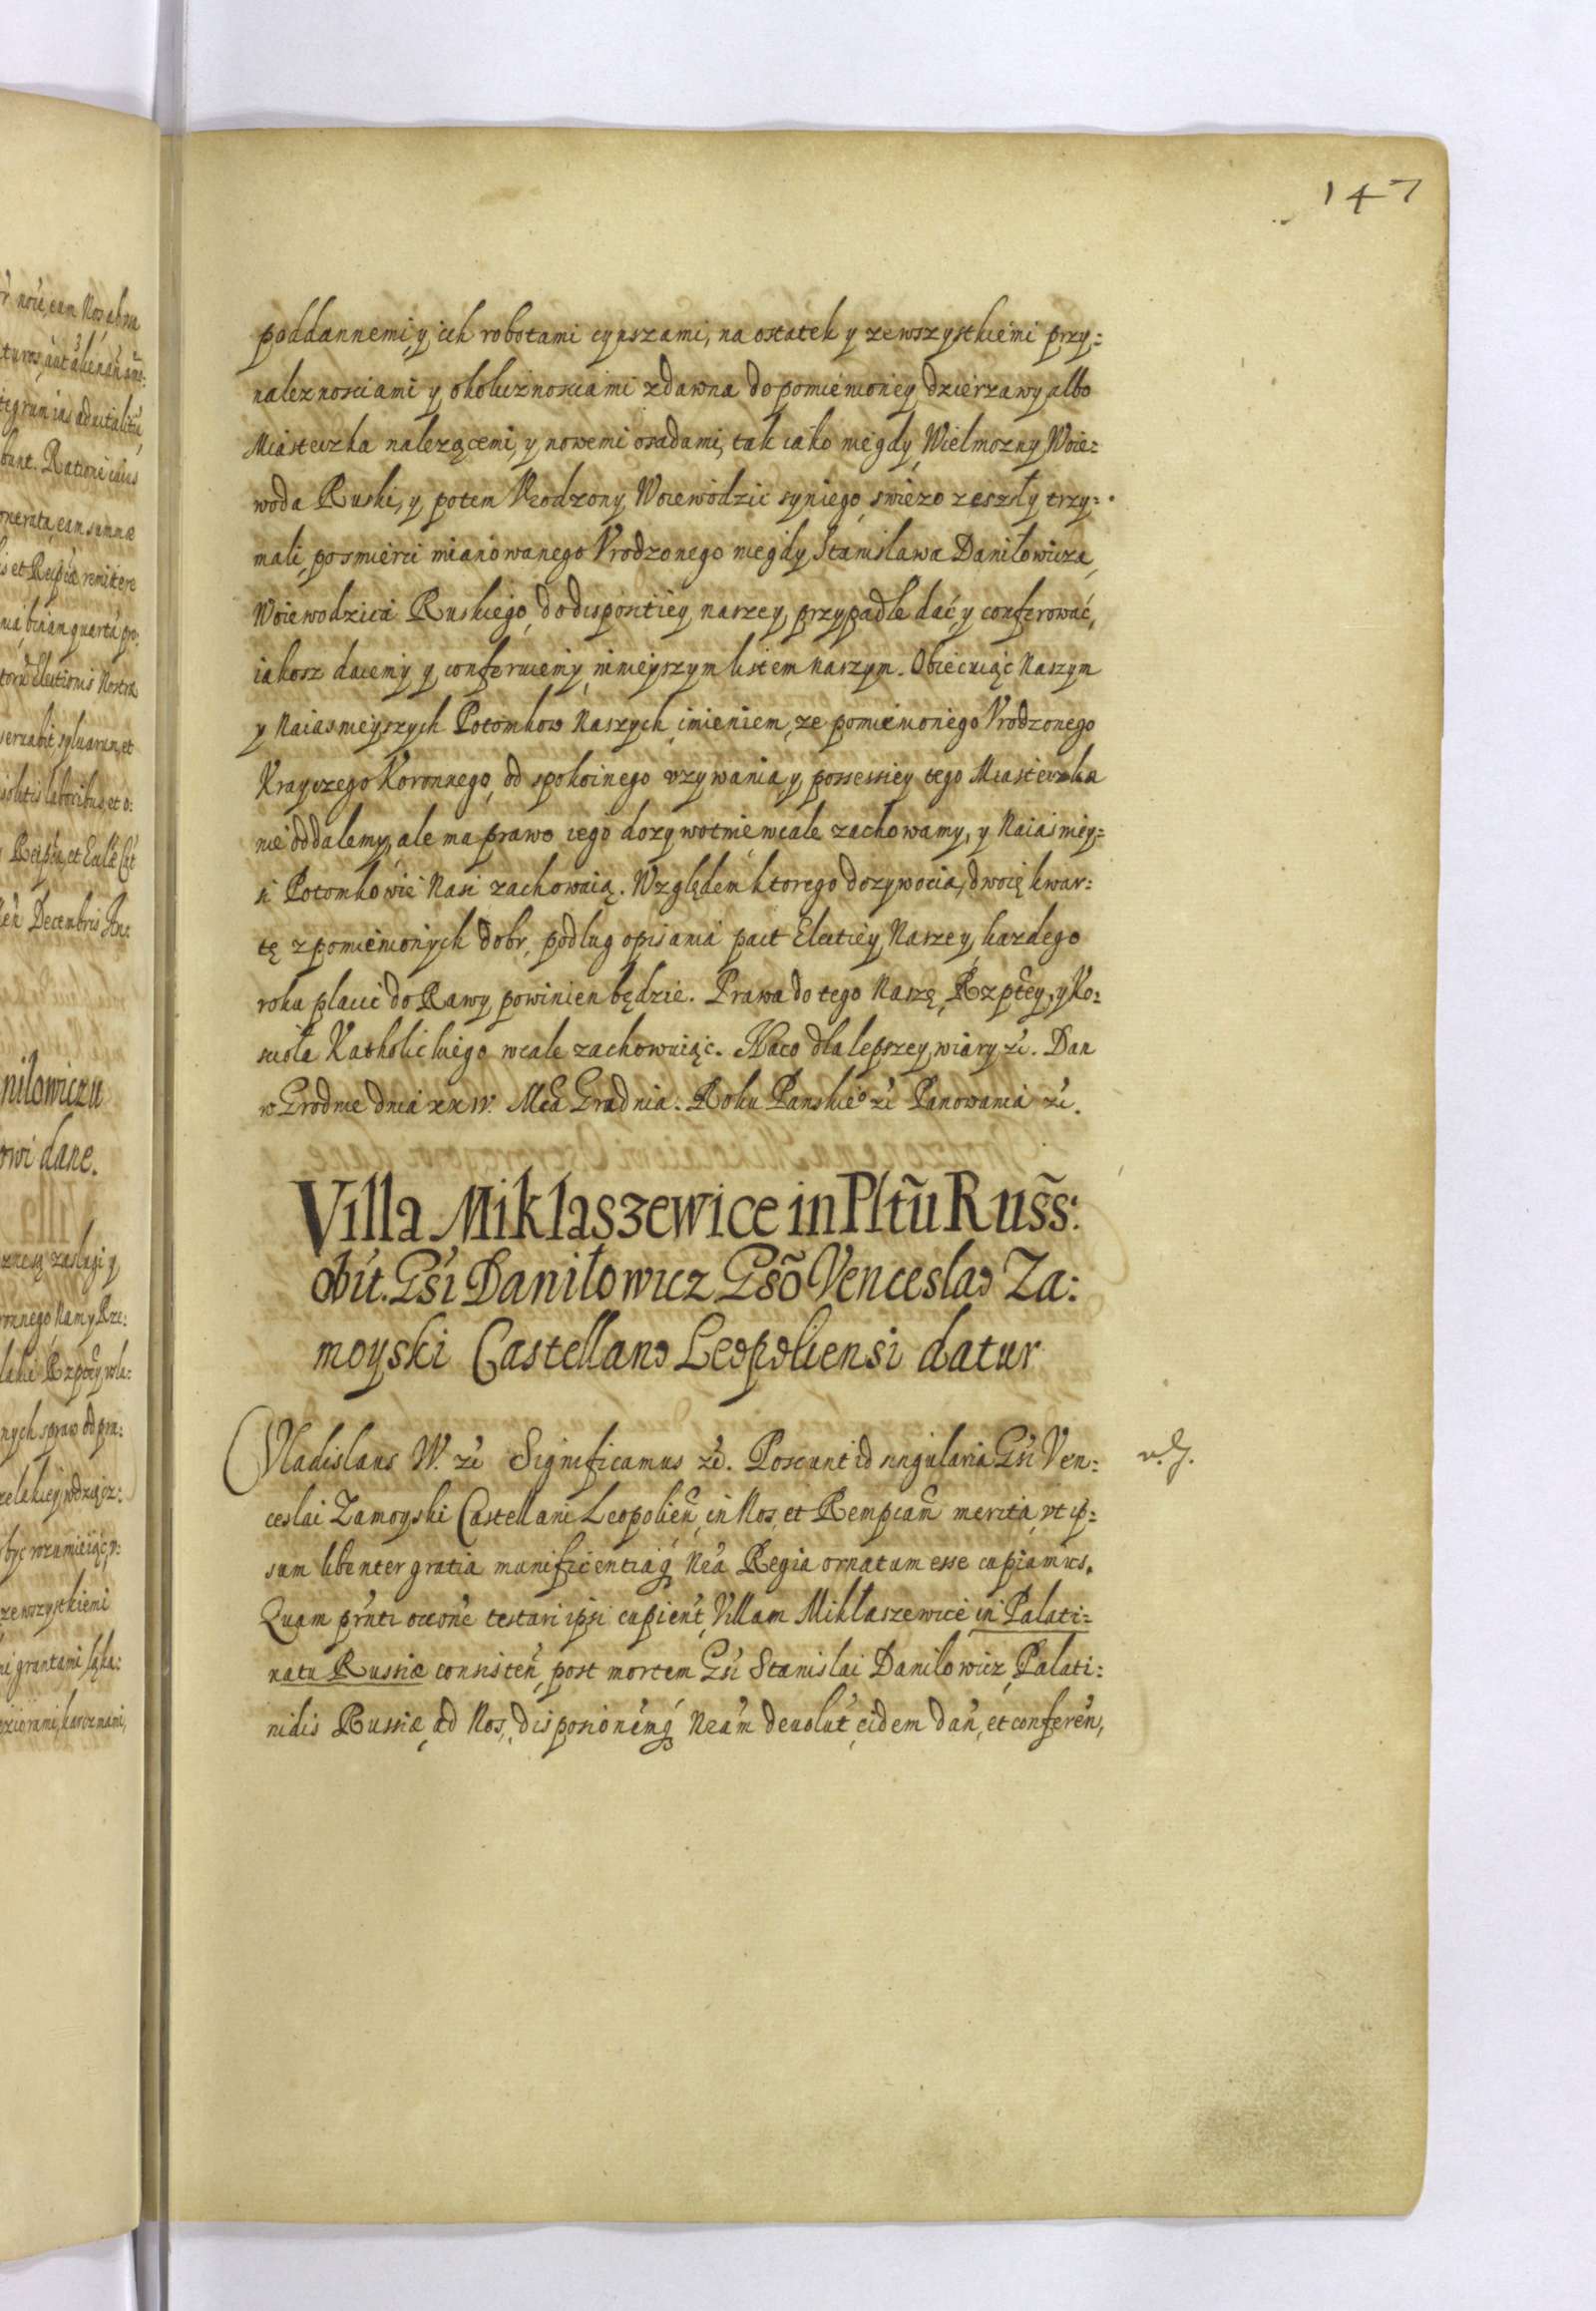 147
poddannemi, y ich robotami cynszami, na ostatek y zewszystkiemi przy:
naleznosciami y okolicznosciami zdawna do pomienioney dzierzawy albo
Miasteczka nalezącemi, y nowemi osadami, tak iako niegdy Wielmozny Woie:
woda Ruski, y potem Vrodzony Woiewodzic syn iego swiezo zeszły trzy:
mali, po smierci mianowanego Vrodzonego niegdy Stanisława Daniłowicza,
Woiewodzica Ruskiego, do dispositiey naszey przypadłe dać y conferować,
iakosz daiemy y conferuiemy ninieyszym listem naszym. Obiecuiąc Naszym
y Naiasnieyszych Potomkow Naszych imieniem, ze pomienionego Vrodzonego
Krayczego Koronnego, od spokoinego vzywania y possessiey tego Miasteczka
nie oddalemy, ale ma prawo iego dozywotnie wcale zachowamy, y Naiasniey:
si Potomkowie Nasi zachowaią. Względem ktorego dozywocia, dwoię kwar:
tę z pomienionych dobr, podług opisania pact Electiey Naszey, kazdego
roku płacić do Rawy powinien będzie. Prawa do tego Naszę, Rzptey, y Ko:
scioła Katholickiego wcale zachowuiąc. Na co dla lepszey wiary &c. Dan
w Grodnie dnia XXIV. Mca Grudnia. Roku Panskieo &c Panowania &c.
Villa Miklaszewice in Pltũ Russ:
obit. Gsi Daniłowicz Gsõ Venceslao Za:
moyski Castellano Leopoliensi datur
Vladislaus IV. &c Significamus &c. Poscunt id singularia Gsi Ven:
v. g.
ceslai Zamoyski Castellani Leopolien, in Nos, et Rempcam merita, vt ip:
sum libenter gratia munificentiaq Nra Regia ornatum esse cupiamus.
Quam prnti occone testari ipsi cupient, Villam Miklaszewice in Palati=
natu Russiæ consisten, post mortem Gsi Stanislai Danilowicz, Palati:
nidis Russiæ, ad Nos, disposionemq Nram deuolut, eidem dan, et conferen,